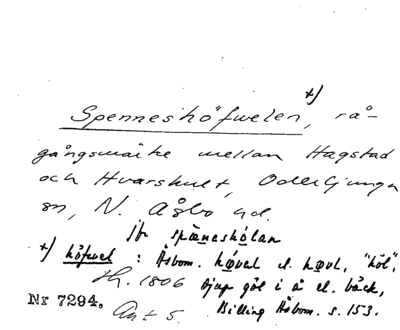 x)
Spenneshöfwelen, rå-
gångsmärke mellan Hagstad
och Hvarshult, Oderljunga
sn, N. Åsbo hd.
jfr spæneshólan
x) höfvel : Åsbom. høvel el. høvl, "höl",
H. 1806 djup göl i å el. bäck,
Nr 7294. Ant 5. Billing Åsbom. s. 153.